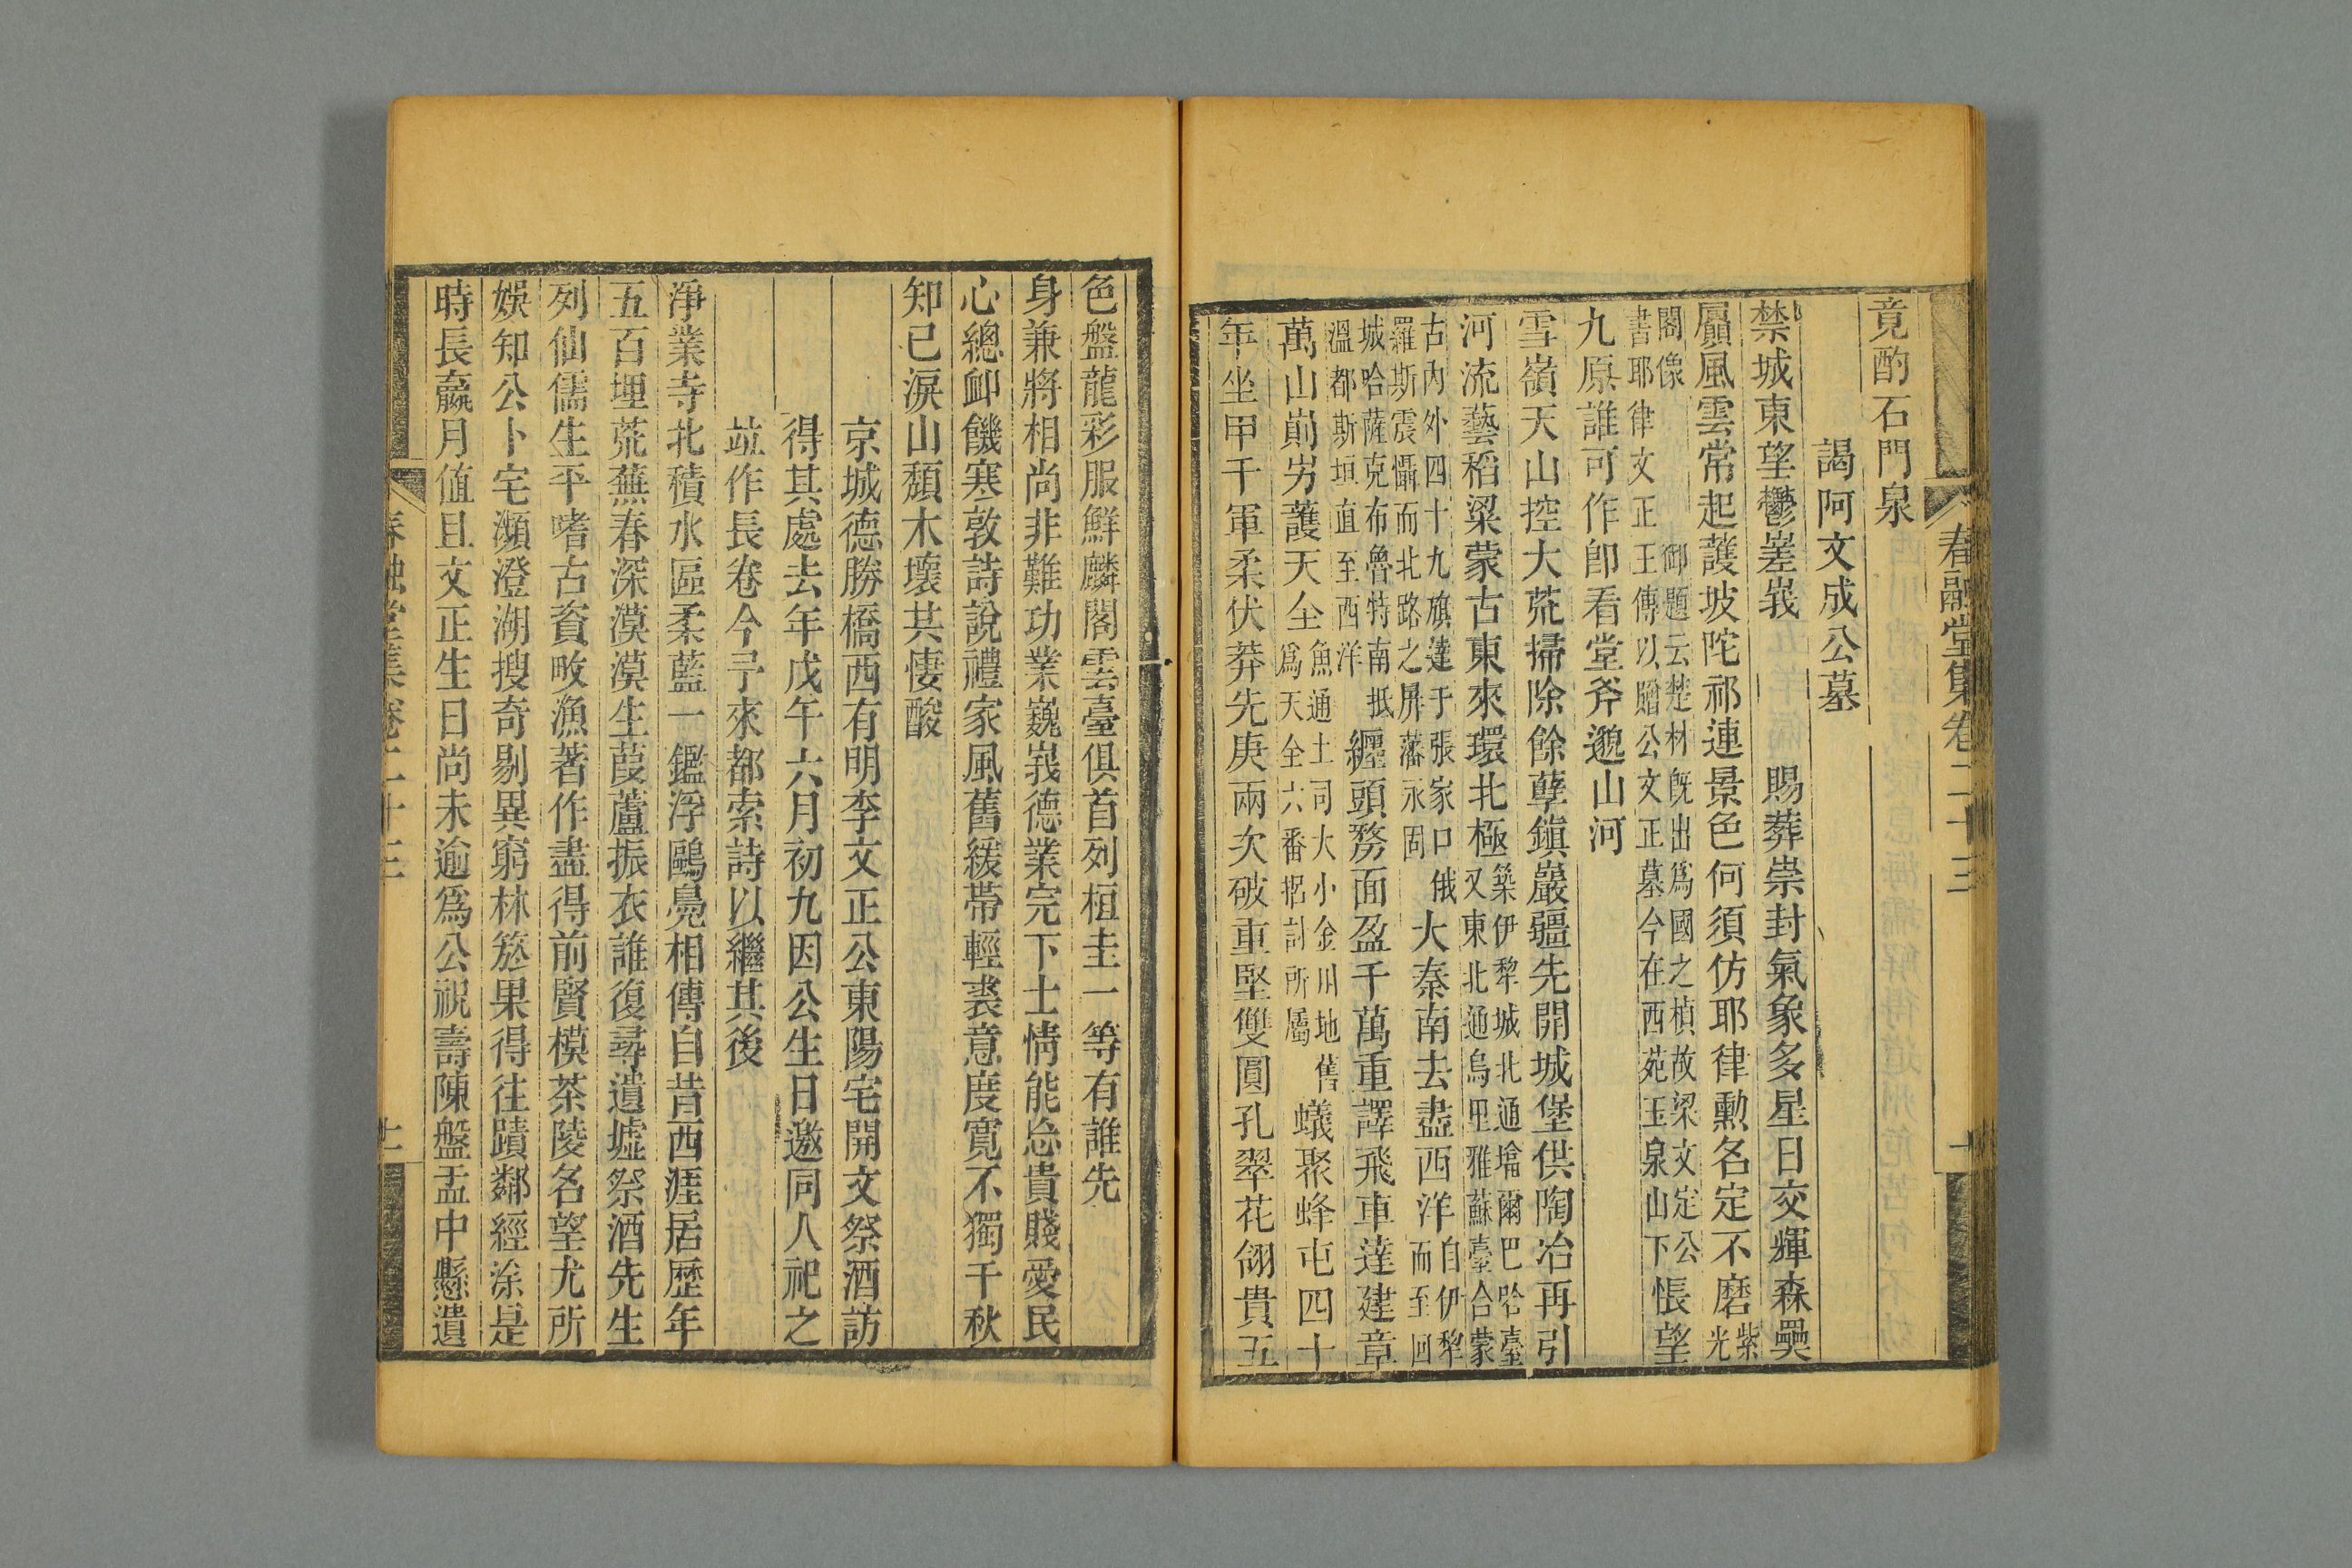 春融堂集卷二十三
竟酌石門泉
謁阿文成公墓
禁城東望鬱嵳峩
賜葬崇封氣象多星日交輝森奰
屭風雲常起護坡陀祁連景色何須仿耶律勳名定不磨紫
光
閣像
御題云楚材旣出爲國之楨故梁文定公
書耶律文正王傳以贈公文正墓今在西苑玉泉山下
悵望
九原誰可作卽看堂斧邈山河
雪嶺天山控大荒掃除餘孽鎭嚴疆先開城堡供陶冶再引
河流藝稻粱蒙古東來環北極
築伊犂城北通塔爾巴哈臺
又東北通烏里雅蘇臺合蒙
古內外四十九旗達于張家口俄
羅斯震懾而北路之屏藩永固
大秦南去盡西洋
自伊犂
而至囘
城哈薩克布魯特南抵
溫都斯垣直至西洋
纒頭剺面盈千萬重譯飛車達建章
萬山崱屴護天全
魚通土司大小金川地舊
爲天全六番招討所屬
蟻聚蜂屯四十
年坐甲千軍柔伏莽先庚兩次破重堅雙圓孔翠花翎貴五
色盤龍彩服鮮麟閣雲臺俱首列桓圭一等有誰先
身兼將相尚非難功業巍峩德業完下士情能忘貴賤愛民
心總卹饑寒敦詩說禮家風舊緩帶輕裘意度寬不獨千秋
知己淚山頹木壞共悽酸
京城德勝橋西有明李文正公東陽宅開文祭酒訪
得其處去年戊午六月初九因公生日邀同人祀之
竝作長卷今予來都索詩以繼其後
淨業寺北積水區柔藍一鑑浮鷗鳧相傳自昔西涯居歷年
五百堙荒蕪春深漠漠生葭蘆振衣誰復尋遺墟祭酒先生
列仙儒生平嗜古資畋漁著作盡得前賢模茶陵名望尤所
娛知公卜宅瀕澄湖搜奇剔異窮林箊果得往蹟鄰經涂是
時長嬴月值且文正生日尚未逾爲公祝壽陳盤盂中懸遺
春融堂集卷二十三